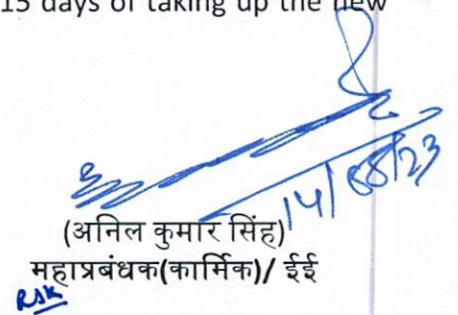 15 days of taking up the new
14/08/23
(अनिल कुमार सिंह)
महाप्रबंधक(कार्मिक)/ ईई
RSK